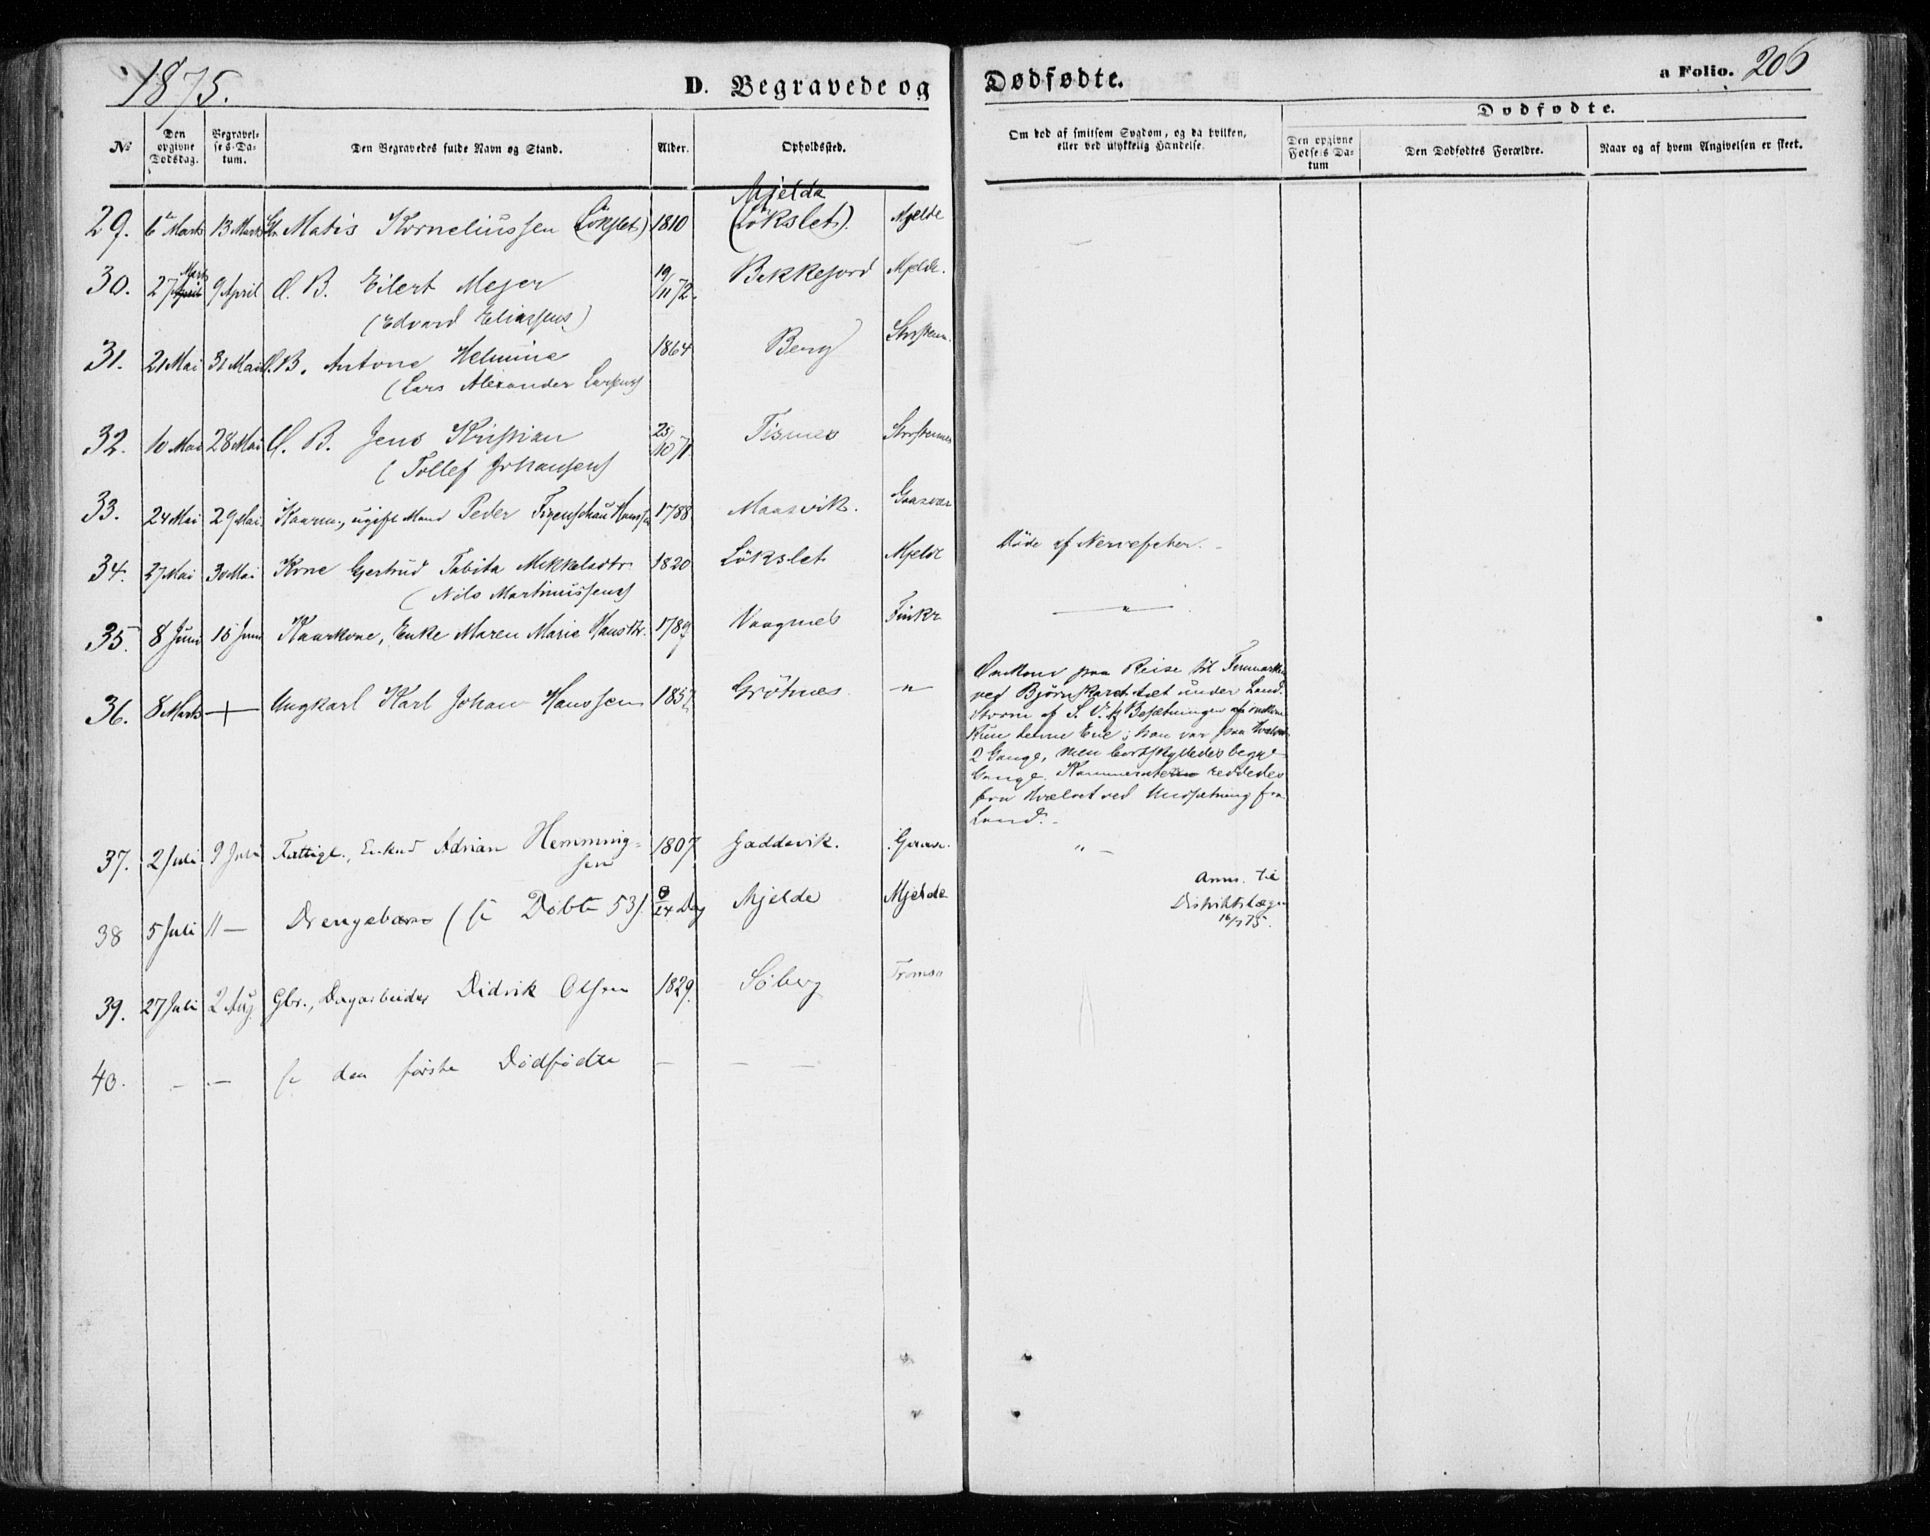 1875.
D. Begravede og Dødfødte.
a Folio. 206
Dødfødte.
No
Den opgivne Dødsdag.
Begravelses-Datum.
Den Begravedes fulde Navn og Stand.
Alder.
Opholdssted.
Om død af smitsom Sygdom, og da hvilken, eller ved ulykkelig Hændelse.
Den opgivne Fødsels Datum
Den Dødfødtes Forældre.
Naar og af hvem Angivelsen er skeet.
Mjelde
29. 6te Marts 13 Marts Matis Korneliussen (Løkslet) 1810 (Løkslet). Mjelde
Marts
30. 27 April 9 April Æ. B. Eilert Mejer 19/11 72. Bekkefjord Mjelde.
(Edvard Eliassens)
31. 21 Mai 31 Mai Æ.B. Antone Helmine 1864 Berg Storstenn.
(Lars Alexander Larsens)
32. 10 Mai 28 Mai Æ. B. Jens Kristian 25/10 71. Tisnes Storstennes
(Tollef Johansens)
33. 24 Mai 29 Mai Kaarm., ugift Mand Peder Figenschau Hanssen 1788. Maasvik. Gaasvær
34. 27 Mai 30 Mai Kone Gjertrud Tabita Mikkelsdtr 1820 Løkslet Mjelde
Døde af Nervefeber.
(Nils Martinussens)
35. 8 Juni 15 Juni Kaarkone, Enke Maren Marie Hansdtr. 1789. Vaagnes Finkr
"
36. 8 Marts + Ungkarl Karl Johan Hanssen 1857. Grøtnes "
Omkom paa Reise til Finmarken
ved Bjørnskaret tæt under Land.
Storm af S. V. Af Besætningen omkom
kun denne Ene; han var paa Hvælvet
2 Gange, men bortskylledes begge
Gange. Kammeraterne reddedes
fra Hvælvet ved Undsætning fra
Land.
37. 2 Juli 9 Juli Fattigl., Enkem. Adrian Hemmingsen 1807 Gaddevik.
" —
38 5 Juli 11 — Drengebarn (se Døbte 53). 8/24 Dag Mjelde Mjelde
Anm. til
Distriktslægen
16/7 75.
39. 27 Juli 2 Aug. Gbr., Dagarbeider Didrik Olsen 1829. Søberg Tromsø
40. — — se den første Dødfødte — — —